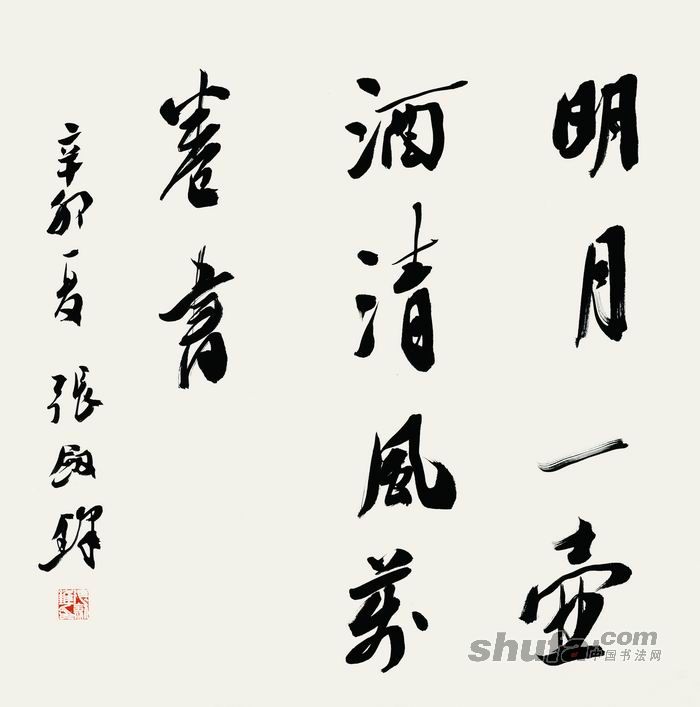 明月一壺
酒清風萬
卷書
辛卯夏 張
shufa.com
中国书法网